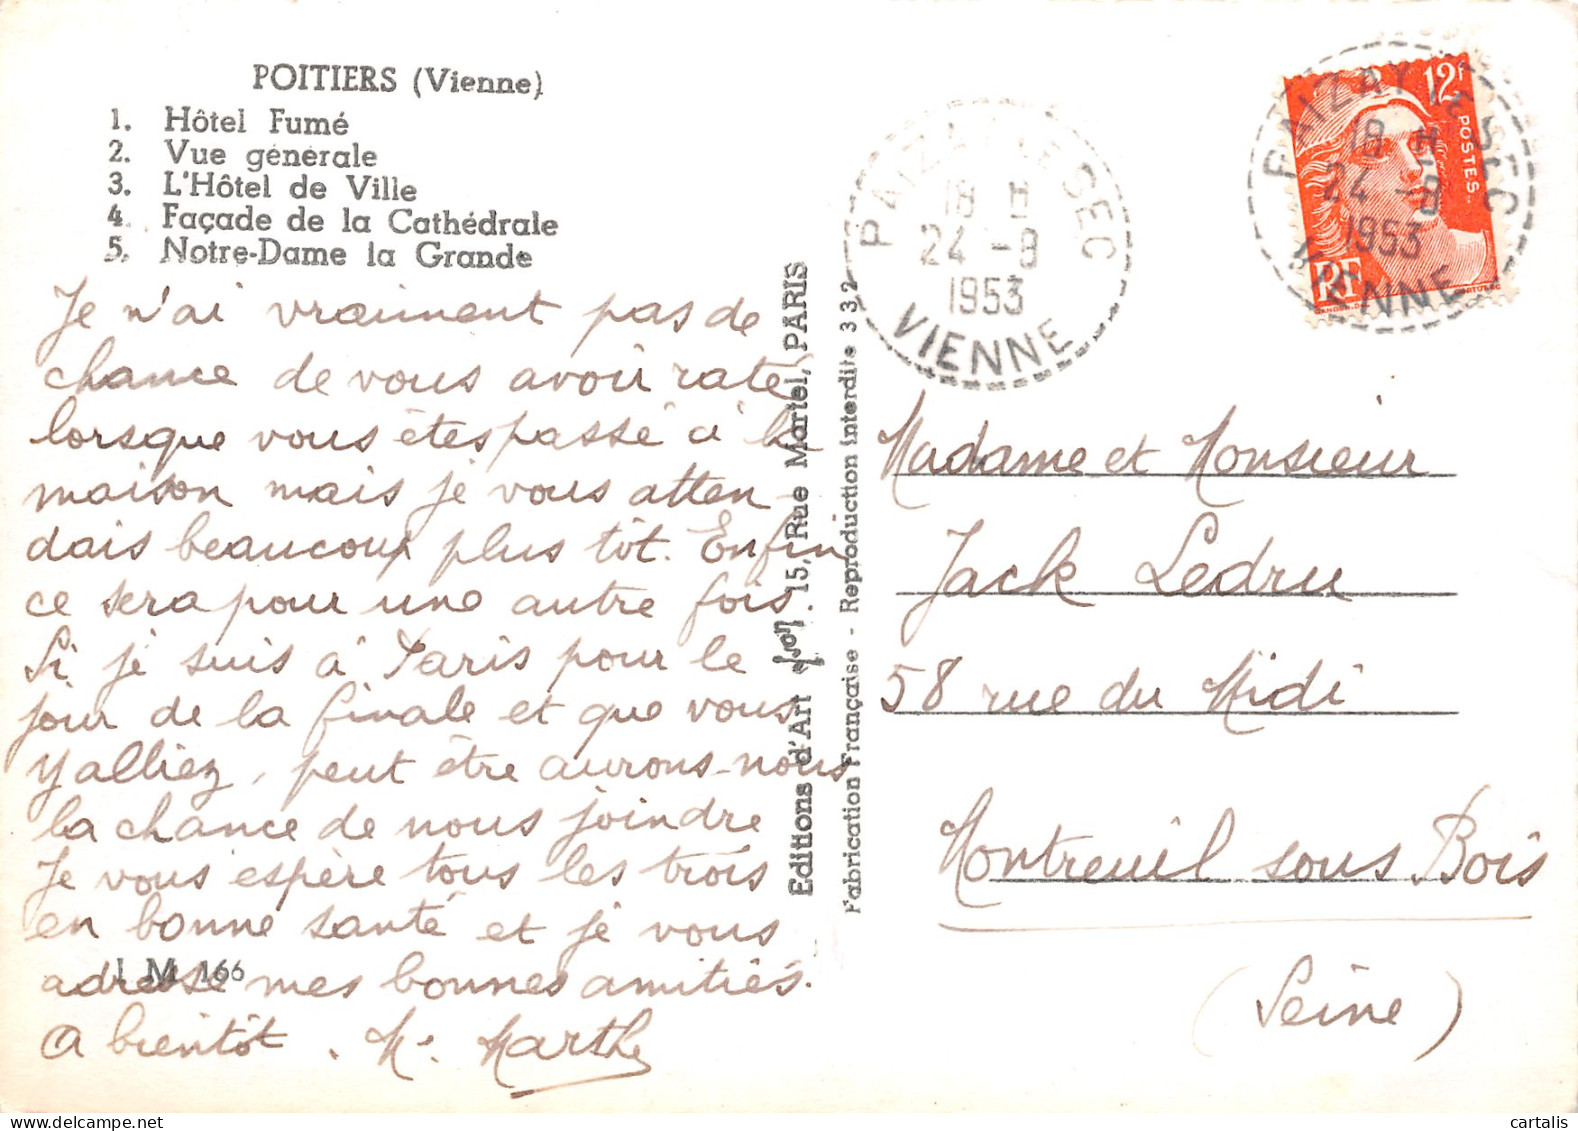 POITIERS (Vienne)
1. Hôtel Fumé
2. Vue générale
3. L'Hôtel de Ville
4. Façade de la Cathédrale
5. Notre-Dame la Grande
Je n'ai vraiment pas de
chance de vous avoir raté
lorsque vous êtes passé à la
maison mais je vous atten-
dais beaucoup plus tôt. Enfin
ce sera pour une autre fois.
Si je suis à Paris pour le
jour de la finale et que vous
y alliez, peut être aurons-nous
la chance de nous joindre
Je vous espère tous les trois
en bonne santé et je vous
adresse mes bonnes amitiés.
A bientôt. M. Marthe
J M 166
Editions d'Art Yvon. 15, Rue Martel, PARIS
Fabrication Française - Reproduction interdite 332
PAIZAY LE SEC
18 H
24 -9
1953
VIENNE
12F
POSTES
RF
PAIZAY LE SEC
18 H
24 -9
1953
VIENNE
Madame et Monsieur
Jack Ledru
58 rue du Midi
Montreuil sous Bois
(Seine)
cartalis